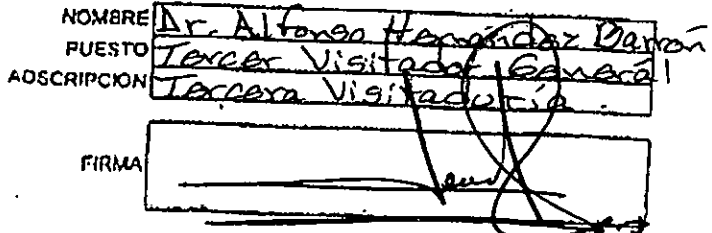 NOMBRE Dr. Alfonso Hernández Barrón
PUESTO Tercer Visitador General
ADSCRIPCION Tercera Visitaduría.
FIRMA